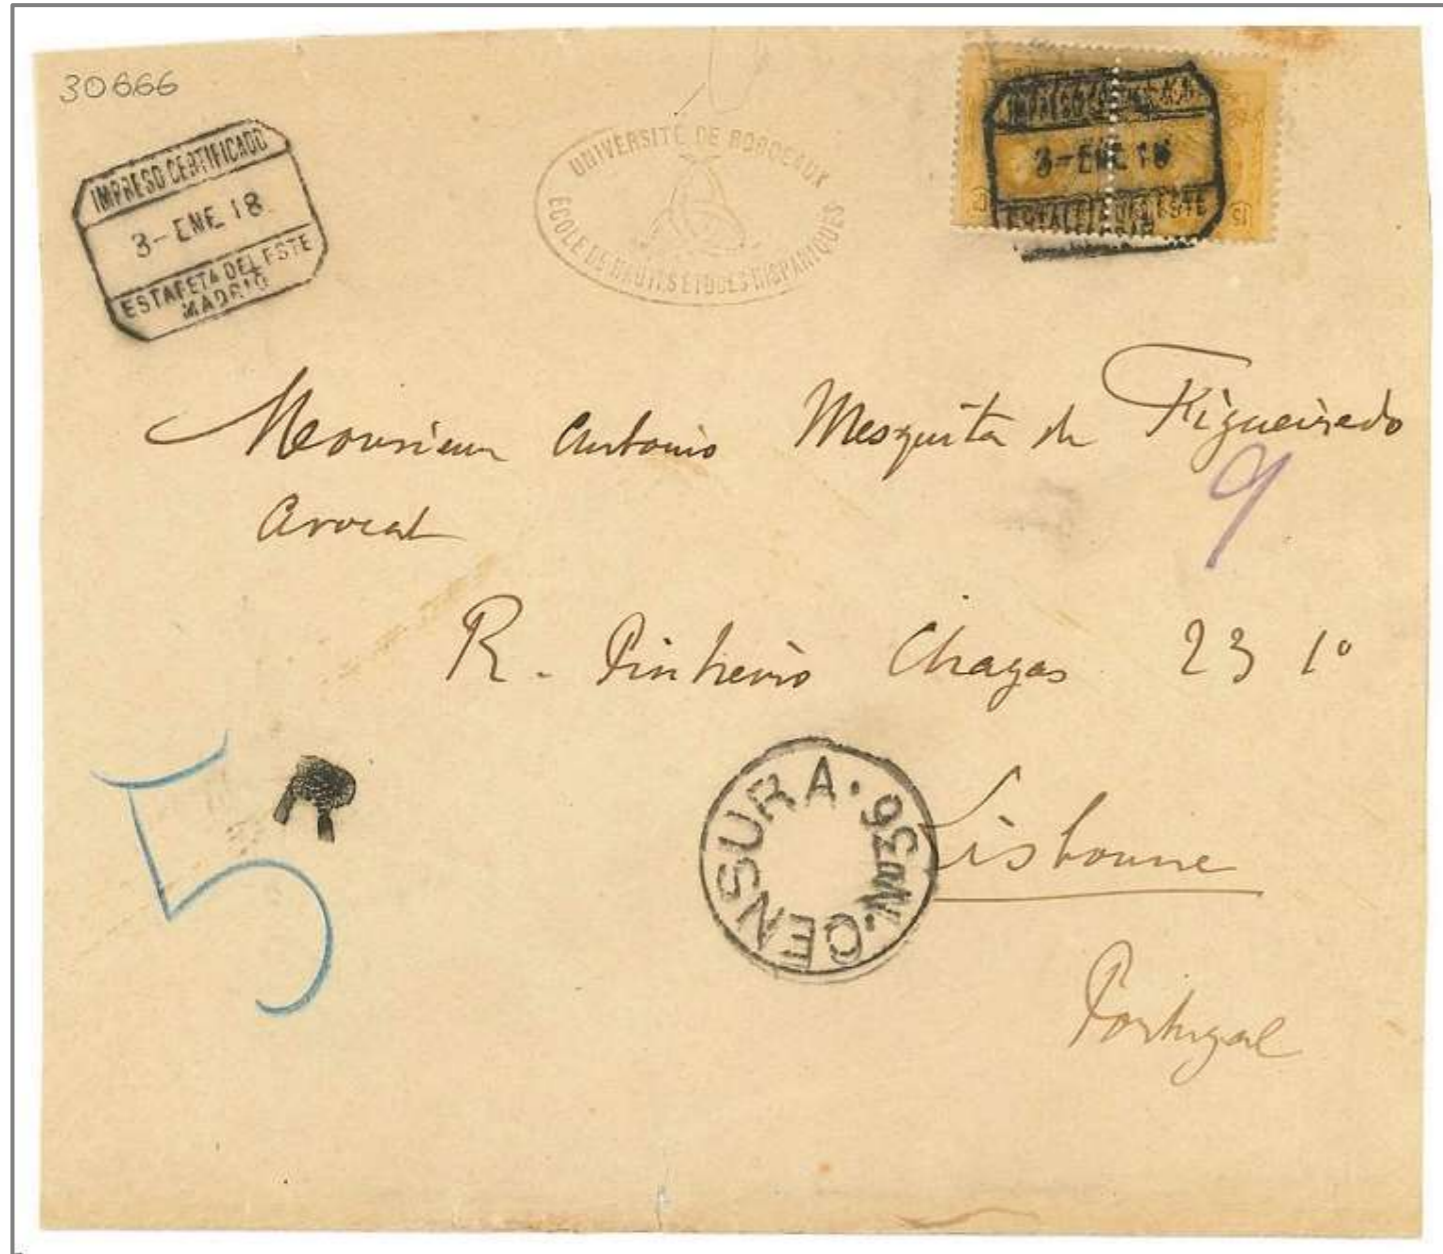 30666
IMPRESO CERTIFICADO
3-ENE 18
ESTAFETA DEL ESTE
MADRID
UNIVERSITÉ DE BORDEAUX
ÉCOLE DE HAUTES ÉTUDES HISPANIQUES
3-ENE 18
ESTAFETA DEL ESTE
15
Monsieur Antonio Mesquita de Figueiredo
9
Avocat
R. Pinheiro Chagas 23 1º
5
CENSURA. 36
Lisbonne
Portugal